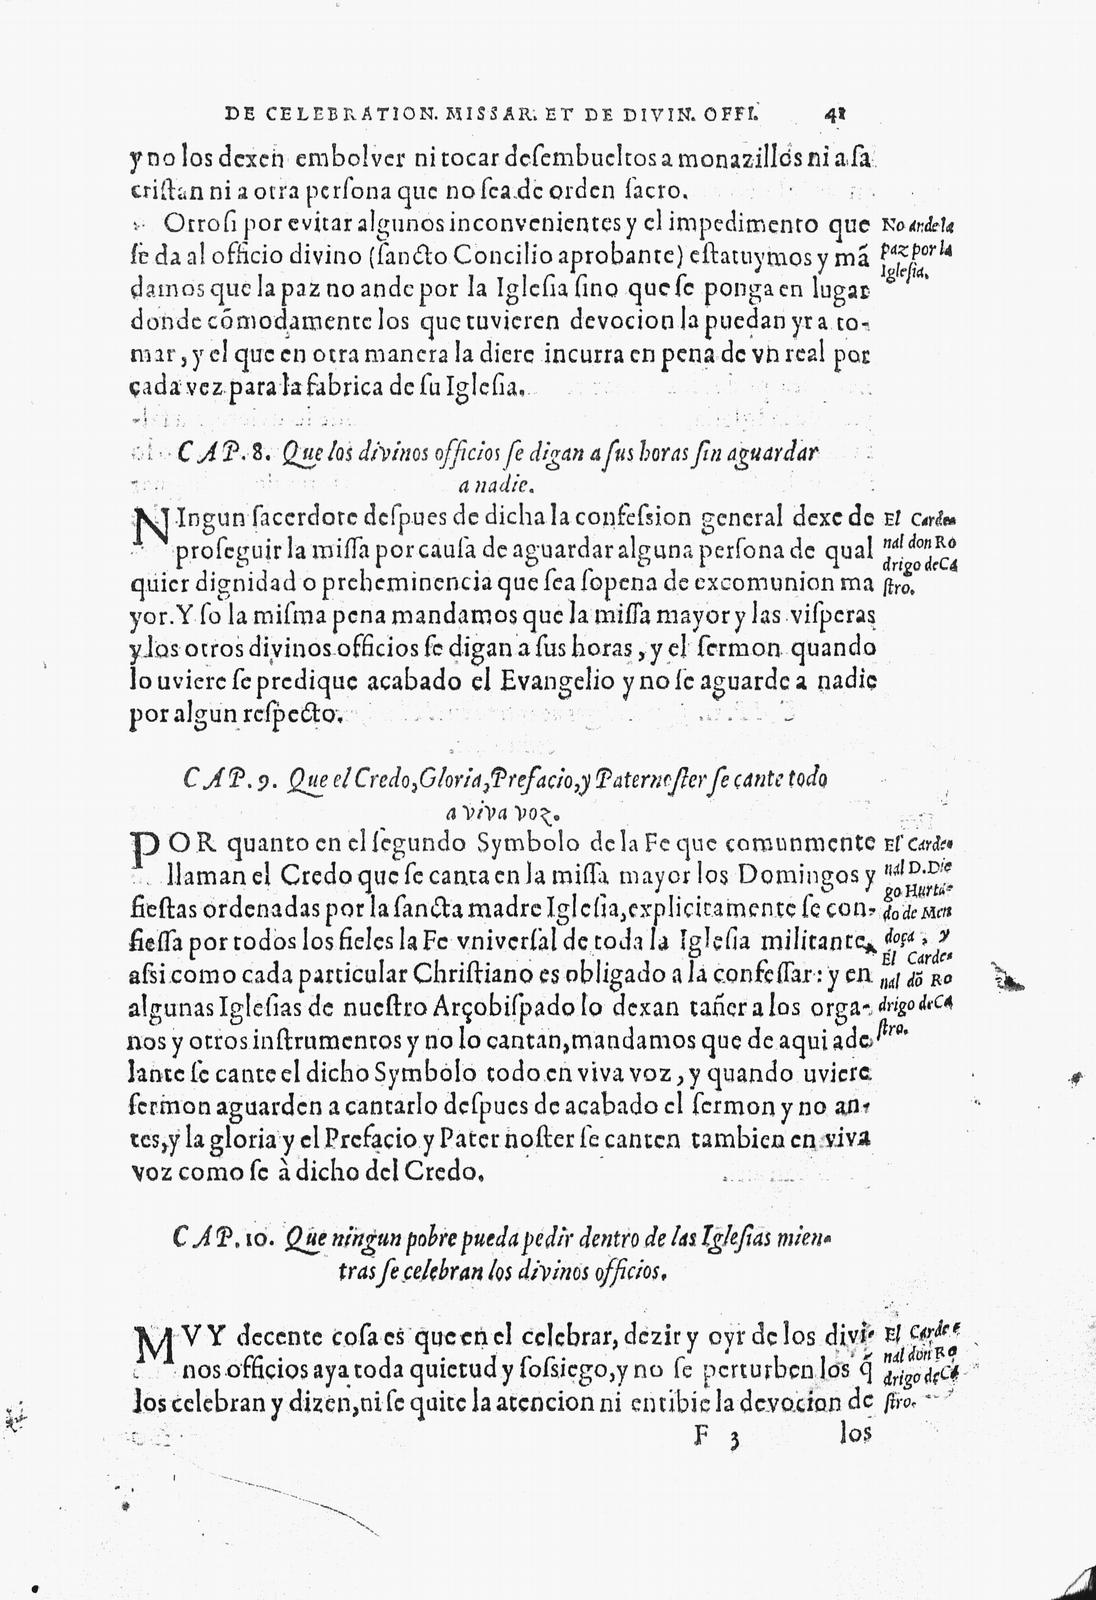 DE CELEBRATION. MISSAR. ET DE DIVIN. OFFI. 41
y no los dexen embolver ni tocar desembueltos a monazillos ni a sa
cristan ni a otra persona que no sea de orden sacro.
Otrosi por evitar algunos inconvenientes y el impedimento que
se da al officio divino (sancto Concilio aprobante) estatuymos y mã
damos que la paz no ande por la Iglesia sino que se ponga en lugar
donde cõmodamente los que tuvieren devocion la puedan yr a to-
mar, y el que en otra manera la diere incurra en pena de vn real por
cada vez para la fabrica de su Iglesia.
No ande la
paz por la
Iglesia.
CAP. 8. Que los divinos officios se digan a sus horas sin aguardar
a nadie.
NIngun sacerdote despues de dicha la confession general dexe de
proseguir la missa por causa de aguardar alguna persona de qual
quier dignidad o preheminencia que sea sopena de excomunion ma
yor. Y so la misma pena mandamos que la missa mayor y las visperas
y los otros divinos officios se digan a sus horas, y el sermon quando
lo uviere se predique acabado el Evangelio y no se aguarde a nadie
por algun respecto.
El Carde-
nal don Ro
drigo de Ca
stro.
CAP. 9. Que el Credo, Gloria, Prefacio, y Paternoster se cante todo
a viva voz.
POR quanto en el segundo Symbolo de la Fe que comunmente
llaman el Credo que se canta en la missa mayor los Domingos y
fiestas ordenadas por la sancta madre Iglesia, explicitamente se con-
fiessa por todos los fieles la Fe vniversal de toda la Iglesia militante,
assi como cada particular Christiano es obligado a la confessar: y en
algunas Iglesias de nuestro Arçobispado lo dexan tañer a los orga-
nos y otros instrumentos y no lo cantan, mandamos que de aqui ade
lante se cante el dicho Symbolo todo en viva voz, y quando uviere
sermon aguarden a cantarlo despues de acabado el sermon y no an-
tes, y la gloria y el Prefacio y Pater noster se canten tambien en viva
voz como se à dicho del Credo.
El Carde-
nal D. Die
go Hurta-
do de Men
doça, y
El Carde-
nal dõ Ro
drigo de Ca
stro.
CAP. 10. Que ningun pobre pueda pedir dentro de las Iglesias mien-
tras se celebran los divinos officios.
MVY decente cosa es que en el celebrar, dezir y oyr de los divi-
nos officios aya toda quietud y sossiego, y no se perturben los q̃
los celebran y dizen, ni se quite la atencion ni entibie la devocion de
El Carde-
nal don Ro
drigo de Ca
stro.
F 3 los